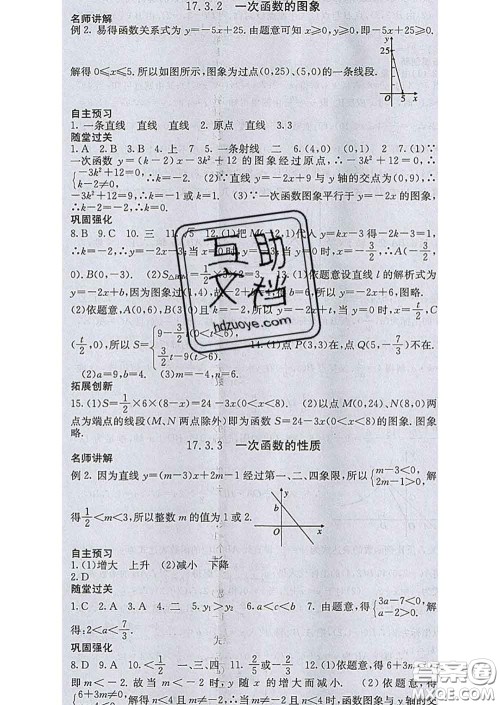 17.3.2 一次函数的图象
名师讲解
例 2. 易得函数关系式为 y=-5x+25. 由题意可知 x≥0, y≥0, 即-5x+25≥0.
解得 0≤x≤5. 所以如图所示, 图象为过点(0,25)、(5,0)的一条线段.
y
25
O 5 x
自主预习
1. 一条直线 直线 直线 2. 原点 直线 3.3
随堂过关
1. A 2. B 3. B 4. 上 7 5. 一条射线 6. (4,0) (0,1) 2 7. (1)∵
一次函数 y=(k-2)x-3k²+12 的图象经过原点, ∴-3k²+12=0, ∴
{-3k²+12=0, k-2≠0, ∴k=-2. (2)∵直线 y=-2x+9 与 y 轴的交点为(0,9), ∴
-3k²+12=9, ∴k=-1 或 k=1. (3)∵一次函数图象平行于 y=-2x 的图象,
∴k-2=-2, ∴k=0.
巩固强化
8. B 9. C 10. 三 11. √5 12. (1)把 M 代入 y=kx-3 得-2k-3=1,
∴k=-2, ∴y=-2x-3; 当 x=0 时, y=-3; 当 y=0 时, x=-3/2, ∴A(-3/2,
0), B(0,-3). 13. (1)依题意设直线 l 的解析式为
y=-2x+b, 因为图象过(1,4), 故 b=6, 所以 y=-2x+6, 图略.
(2)依题意, A(0,6), B(3,0), 当 y=0 时, x=
(t/2, 0), 所以 S={9-3/2t(0<t<6), 3/2t-9(t>6). 14. (1)点 P(3,3)在, 点 Q(5,-7/3)不在.
(2)a=9, (3)m=-4, n=6.
拓展创新
15. (1)S=1/2×6×(8-x)=24-3x(0<x<8). (2)以点 M(0,24)、N(8,0)两
点为端点的线段(M、N 两点除外)即为函数 S=24-3x(0<x<8)的图象. 图象
略.
17.3.3 一次函数的性质
名师讲解
例 2. 因为直线 y=(m-3)x+2m-1 经过第一、二、四象限, 所以{m-3<0, 2m-1>0, 解
得1/2<m<3, 所以整数 m 的值为 1 或 2.
y
O x
自主预习
1. (1)增大 上升 (2)减小 下降
2. D
随堂过关
1. C 2. A 3. A 4. 二 5. y₁>y₂ 6. a<c<b 7. 由题意, 得{3a-7<0, a-2>0, 解
得: 2<a<7/3.
巩固强化
8. D 9. A 10. <1/2 一、三、四 11. 2/5或-2/5 12. (1)依题意, 得 6+3m<0,
即 m<-2. 故当 m<-2 时, y 随 x 的增大而减小. (2)依题意, 得
{6+3m≠0, 解得 n<4 且 m≠-2. 故当 n<4 且 m≠-2 时, 函数图象与 y 轴的交
互助文档
hdzuoye.com
答案圈
MXQE.COM